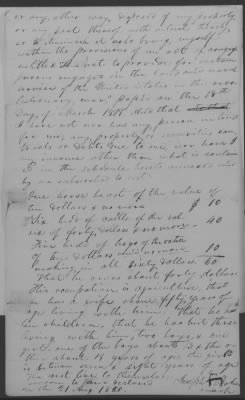 or any other way, disposed of my property
or any part thereof with intent thereby
so to diminish it as to bring myself
within the provisions of an act of congress
entitled "An act to provide for certain
persons engaged in the land and naval
service of the United States in the revo-
lutionary war," passed on the 18th
day of March 1818. And that
I have not nor has any person in trust
for me, any property or securities con-
tracts or Debts due to me, nor have I
any income other than what is contain-
ed in the schedule hereto annexed and
by me subscribed to wit.
One horse beast of the value of
ten dollars & no more $ 10
Six heads of cattle of the val-
ue of forty dollars & no more 40
Five heads of hogs of the value
of ten dollars and no more 10
making in all sixty dollars 60
That he owes about forty dollars
His occupation is agriculture, that
he has a wife about fifty years of
age living with him. That he has
ten children, that he has but three
living with him, two boys, a
girl, one of the boys about the
other about 15 years of age the girl
is between seven & eight years of age
the rest live to themselves.
Sworn to and declared
on the 21 Aug 1820
mark